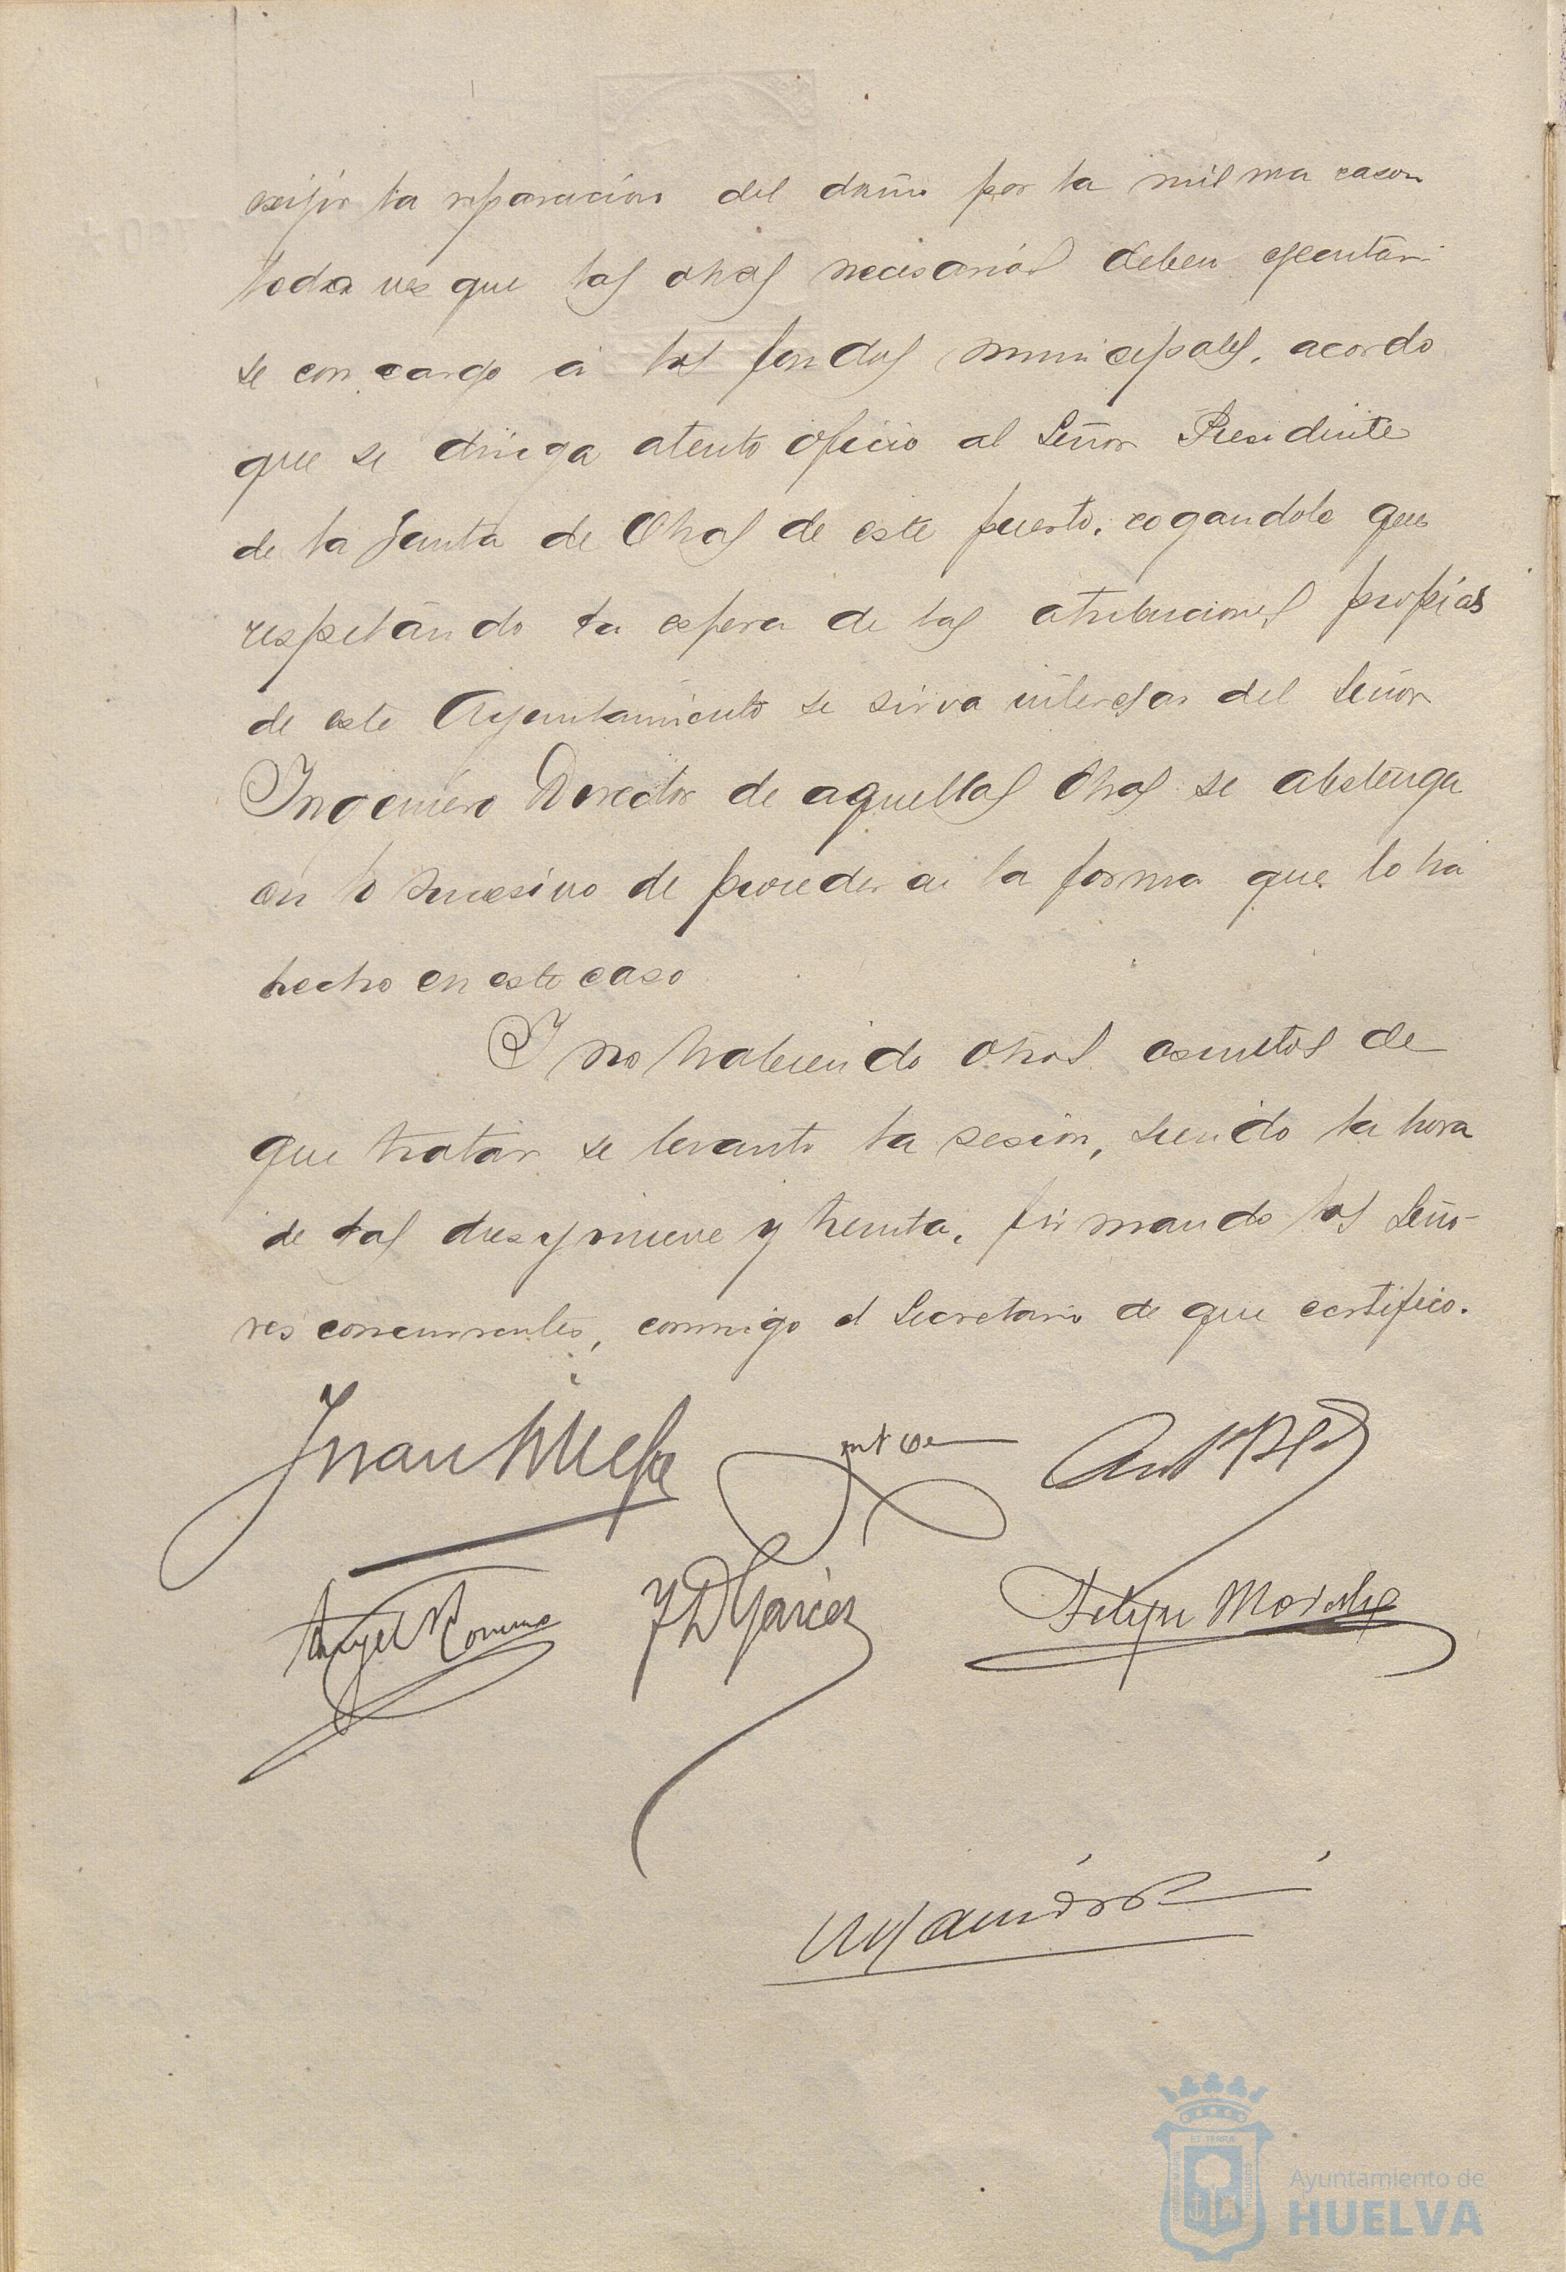 exijir la reparacion del daño por la misma razon
toda vez que las obras necesarias deben ejecutar-
se con cargo á los fondos municipales, acordo
que se dirija atento oficio al Señor Presidente
de la Junta de Obras de este puerto, rogandole que
respetando la esfera de las atribuciones propias
de este Ayuntamiento se sirva interesar del Señor
Ingeniero Director de aquellas Obras se abstenga
en lo sucesivo de proceder en la forma que lo ha
hecho en este caso
Y no habiendo otros asuntos de
que tratar se levanto la sesion, siendo la hora
de las diez y nueve y treinta, firmando los Seño-
res concurrentes, conmigo el Secretario de que certifico.
Juan
Angel Romero
J D Garcés
Felipe Morales
Ayuntamiento de
HUELVA